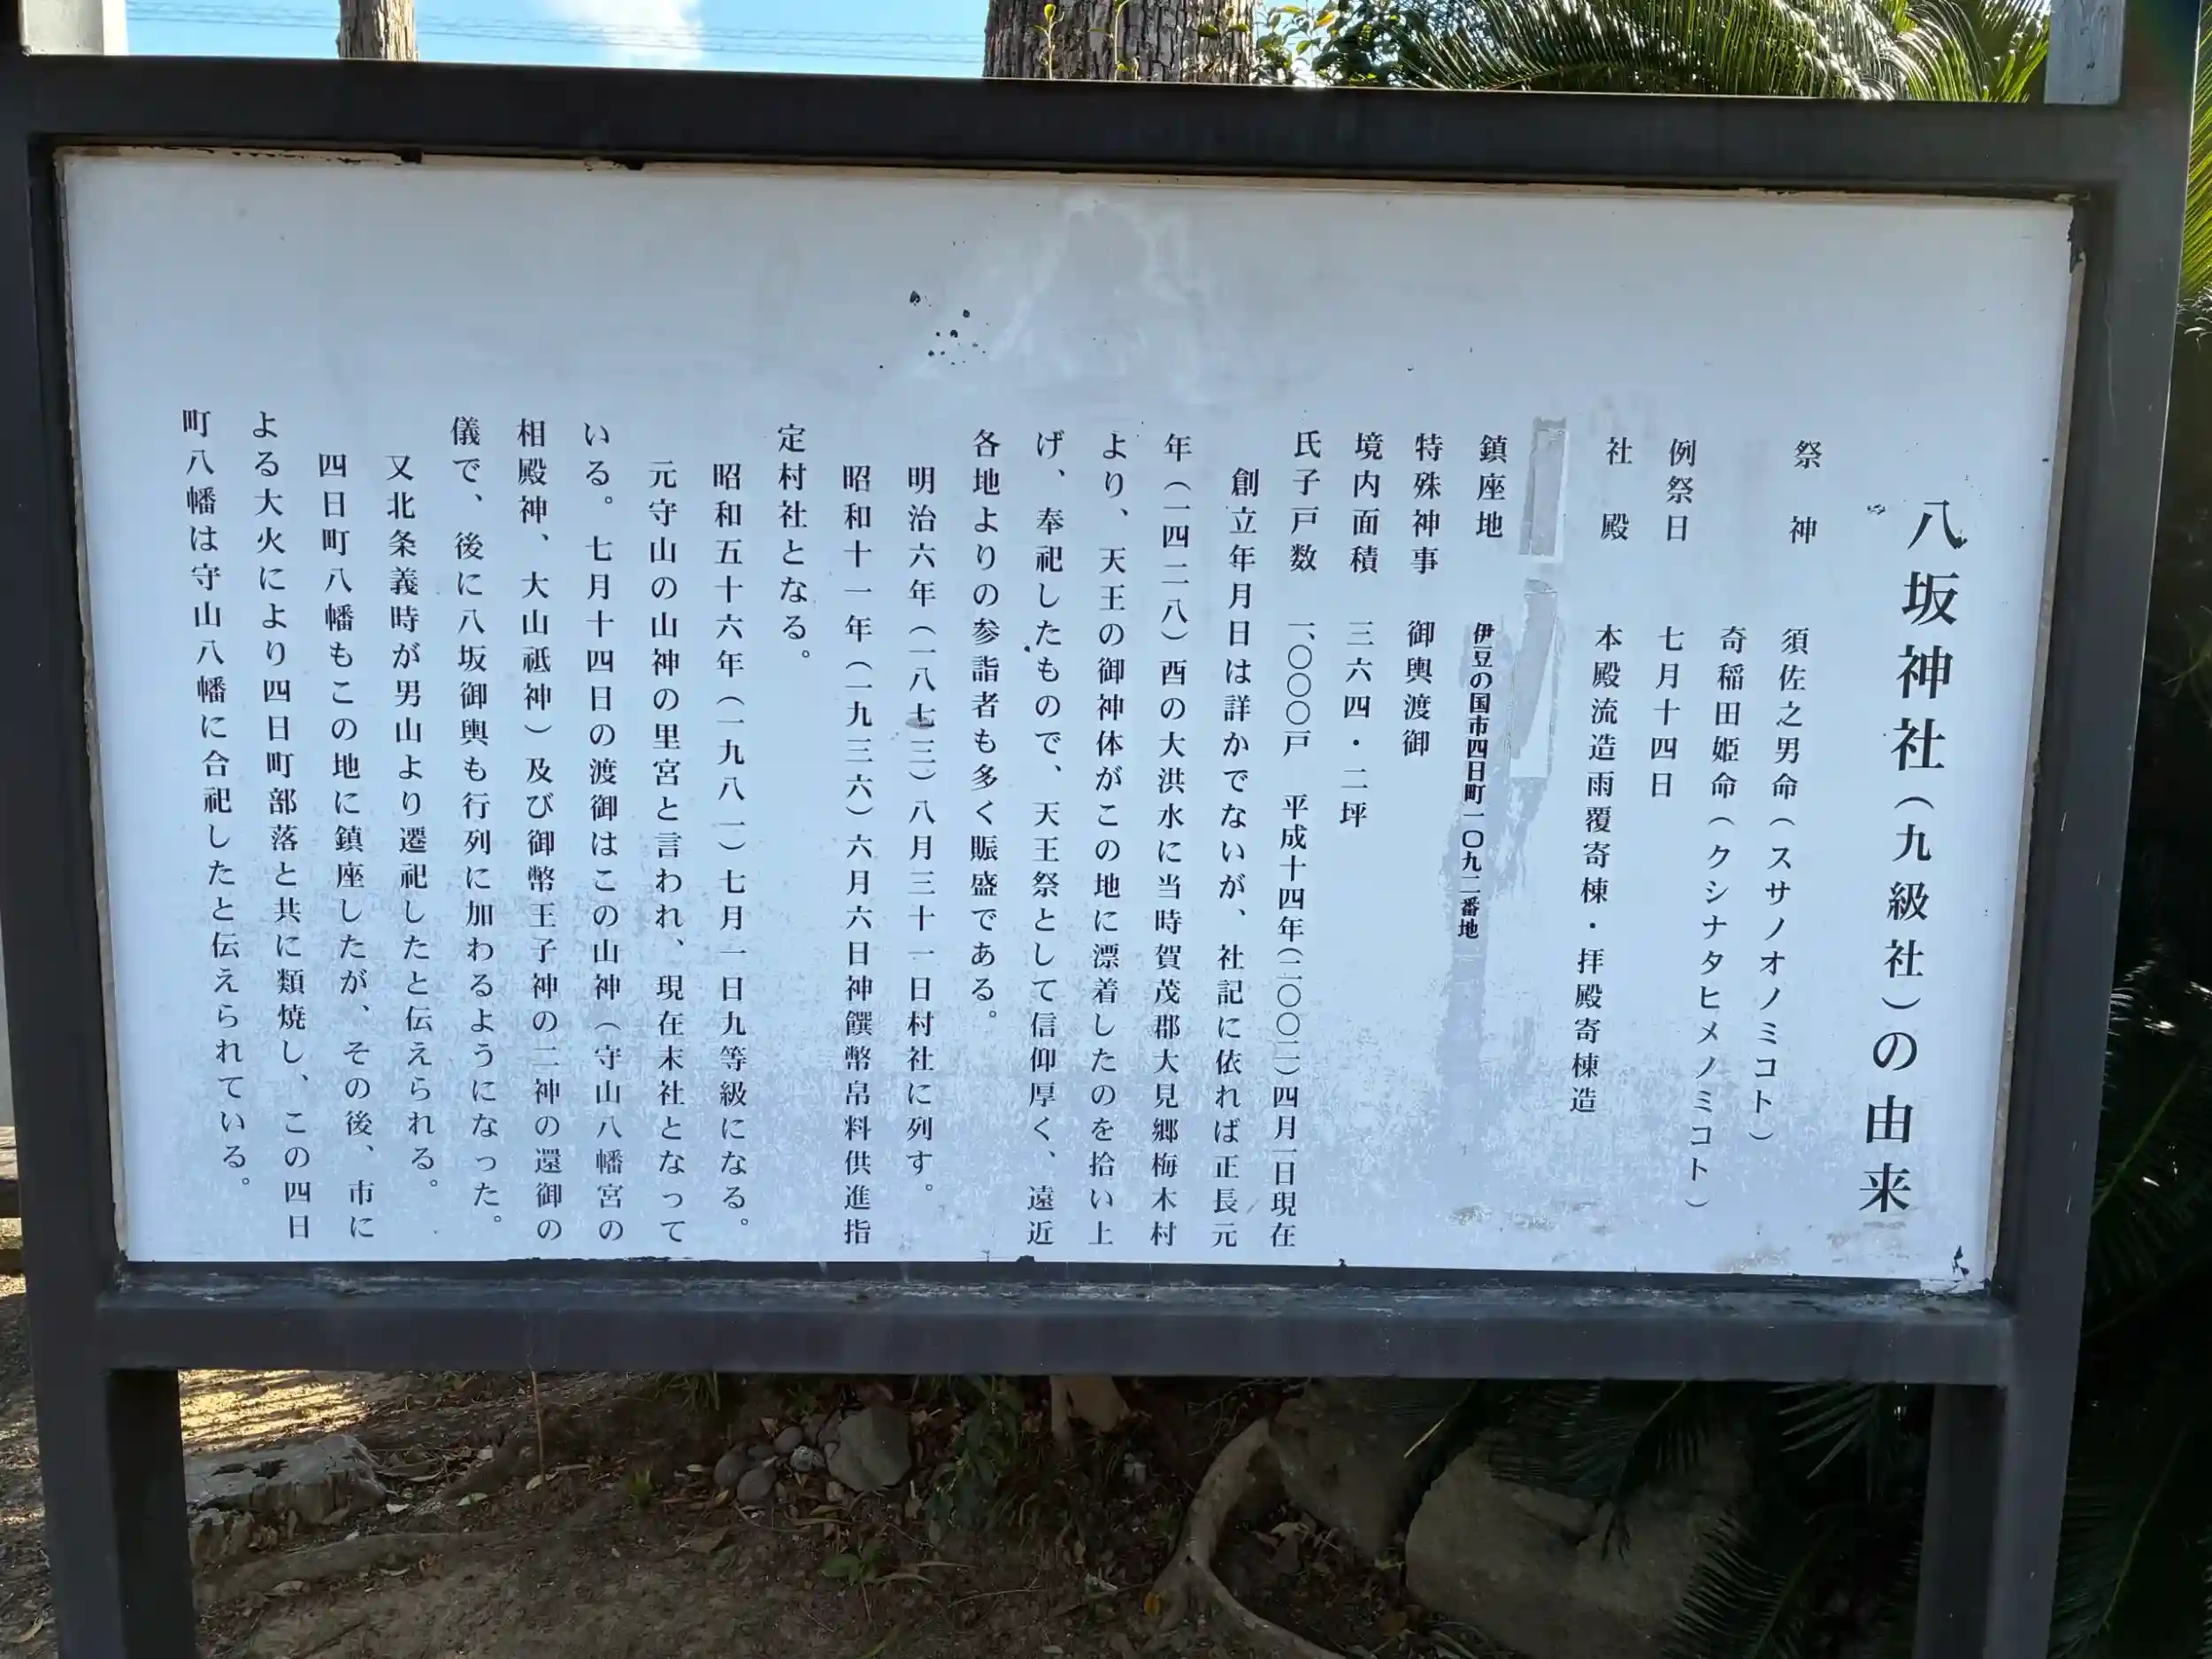 八坂神社(九級社)の由来
祭神 須佐之男命(スサノオノミコト)
奇稲田姫命(クシナタヒメノミコト)
例祭日 七月十四日
社殿 本殿流造雨覆寄棟・拝殿寄棟造
鎮座地 伊豆の国市四日町一〇九二番地
特殊神事 御輿渡御
境内面積 三六四・二坪
氏子戸数 一、〇〇〇戸 平成十四年(二〇〇二)四月一日現在
創立年月日は詳かでないが、社記に依れば正長元
年(一四二八)酉の大洪水に当時賀茂郡大見郷梅木村
より、天王の御神体がこの地に漂着したのを拾い上
げ、奉祀したもので、天王祭として信仰厚く、遠近
各地よりの参詣者も多く賑盛である。
明治六年(一八七三)八月三十一日村社に列す。
昭和十一年(一九三六)六月六日神饌幣帛料供進指
定村社となる。
昭和五十六年(一九八一)七月一日九等級になる。
元守山の山神の里宮と言われ、現在末社となって
いる。七月十四日の渡御はこの山神(守山八幡宮の
相殿神、大山祗神)及び御幣王子神の二神の還御の
儀で、後に八坂御輿も行列に加わるようになった。
又北条義時が男山より遷祀したと伝えられる。
四日町八幡もこの地に鎮座したが、その後、市に
よる大火により四日町部落と共に類焼し、この四日
町八幡は守山八幡に合祀したと伝えられている。